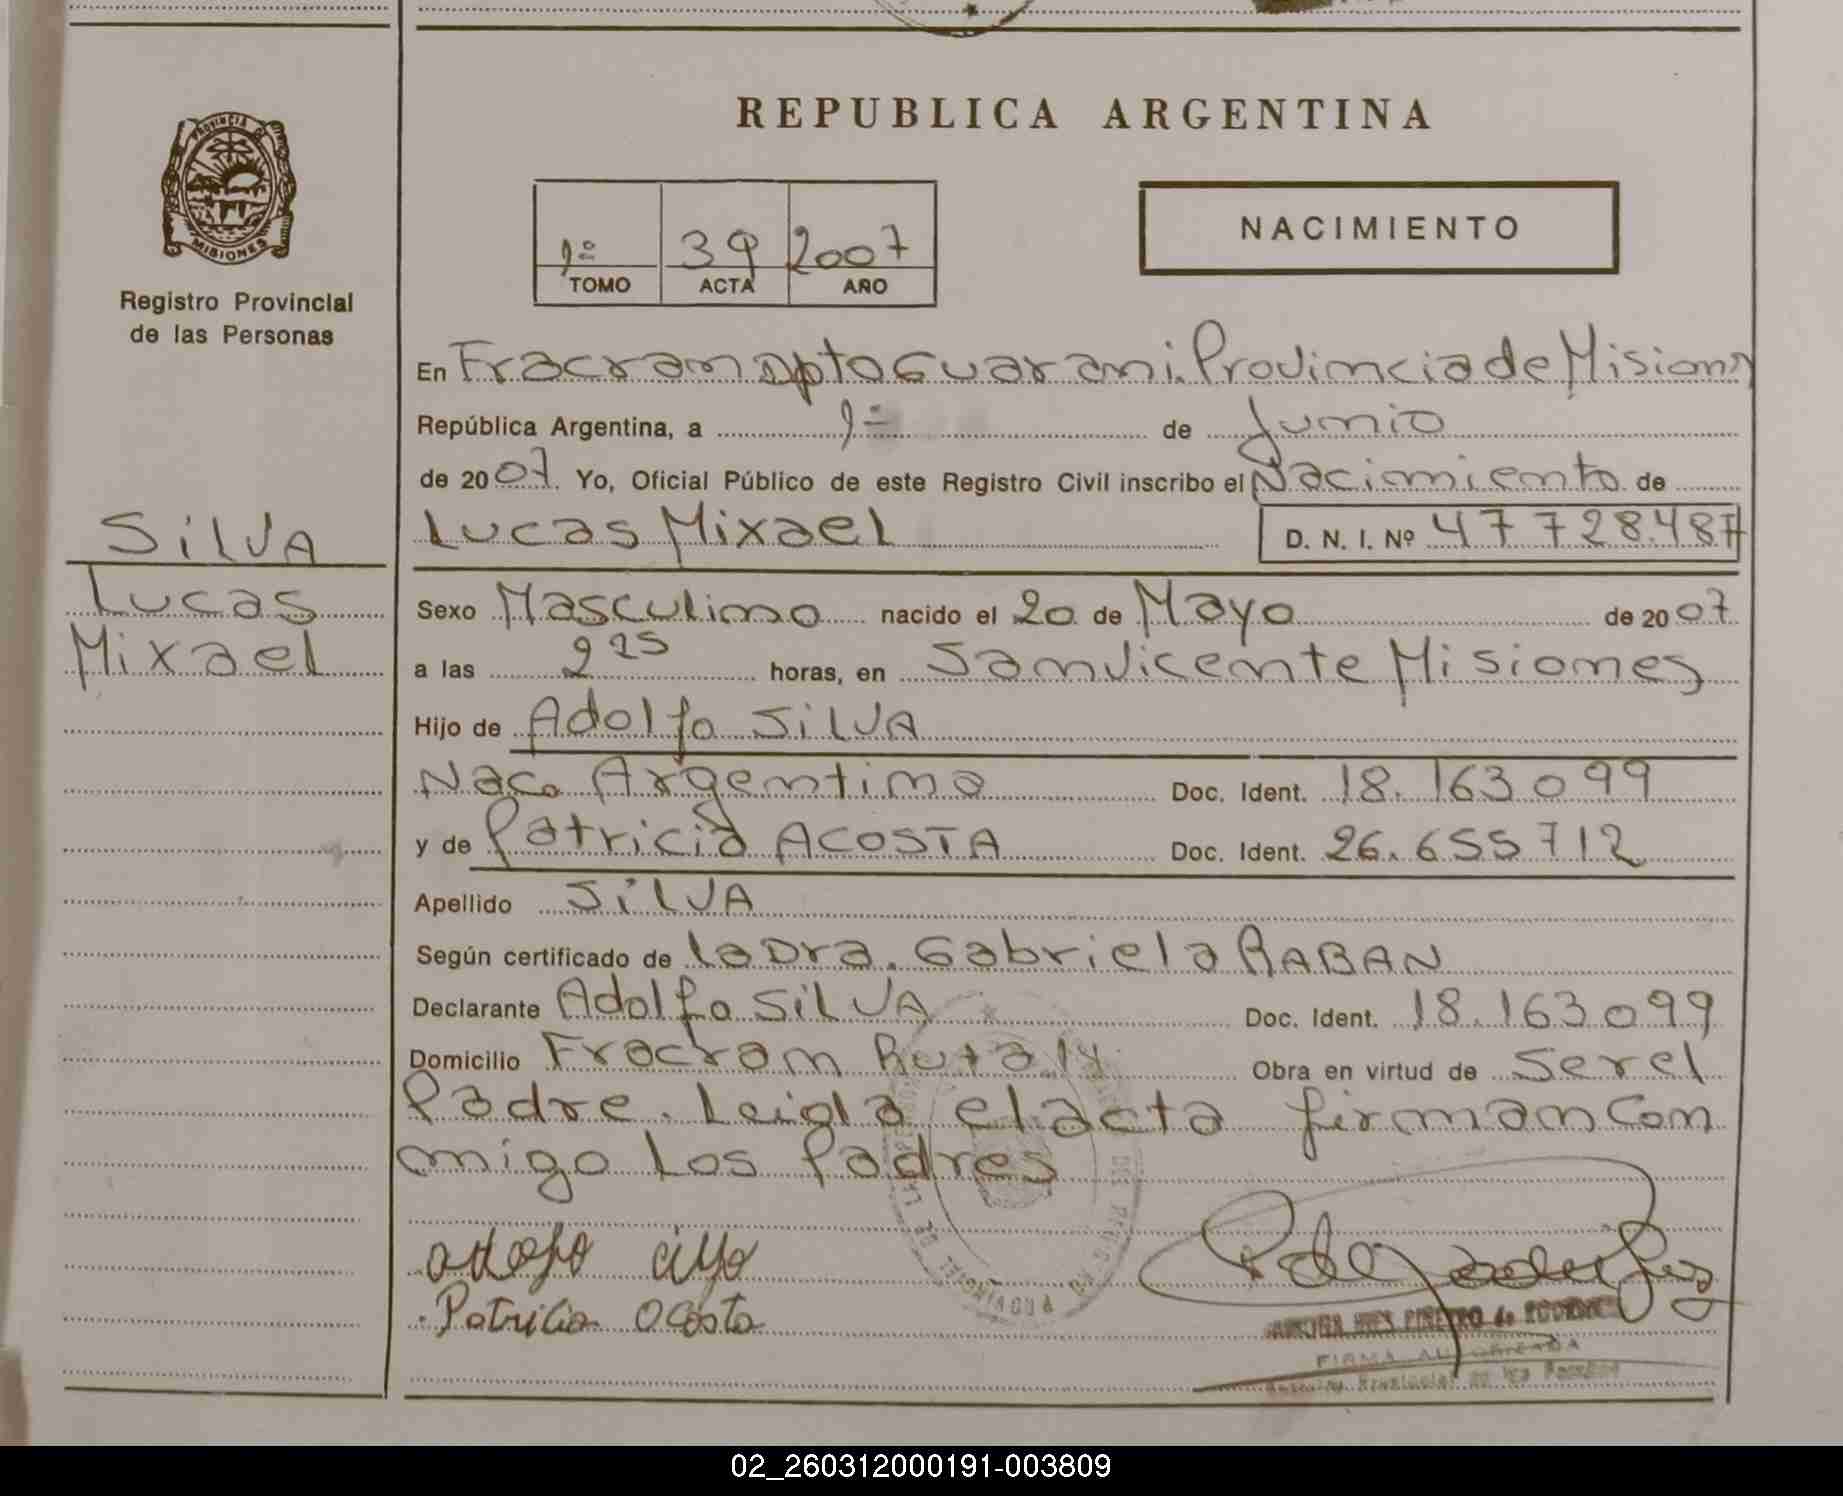 REPUBLICA ARGENTINA
PROVINCIA DE
MISIONES
Registro Provincial
de las Personas
1º 39 2007
TOMO ACTA AÑO
NACIMIENTO
En Fracran Dpto Guarani. Provincia de Misiones
República Argentina, a 1º de Junio
de 2007. Yo, Oficial Público de este Registro Civil inscribo el Nacimiento de
SilVA
Lucas
Mixael
Lucas Mixael D. N. I. Nº 47 728.487
Sexo Masculino nacido el 20 de Mayo de 2007
a las 2 25 horas, en San Vicente Misiones
Hijo de Adolfo SilVA
Nac. Argentino Doc. Ident. 18.163099
y de Patricia ACOSTA Doc. Ident. 26.655712
Apellido SilVA
Según certificado de la Dra. Gabriela RABAN
Declarante Adolfo SilVA Doc. Ident. 18.163099
Domicilio Fracran Ruta 14 Obra en virtud de ser el
Padre. Leida el acta firman con
migo los Padres
Patricia Acosta
FIRMA AUTORIZADA
02_260312000191-003809